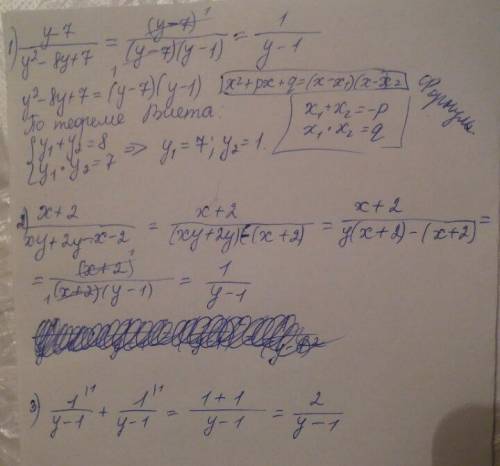 1) (y-7)/(y²-8y+7) = (y-7)/((y-7)(y-1)) = 1/(y-1)
y²-8y+7 = (y-7)(y-1) x²+px+q=(x-x₁)(x-x₂)
По теореме Виета:
{y₁+y₂=8
{y₁·y₂=7 => y₁=7; y₂=1.
x₁+x₂=-p
x₁·x₂=q
2) (x+2)/(xy+2y-x-2) = (x+2)/((xy+2y)-(x+2)) = (x+2)/(y(x+2)-(x+2)) =
= (x+2)/((x+2)(y-1)) = 1/(y-1)
3) 1/(y-1) + 1/(y-1) = (1+1)/(y-1) = 2/(y-1)